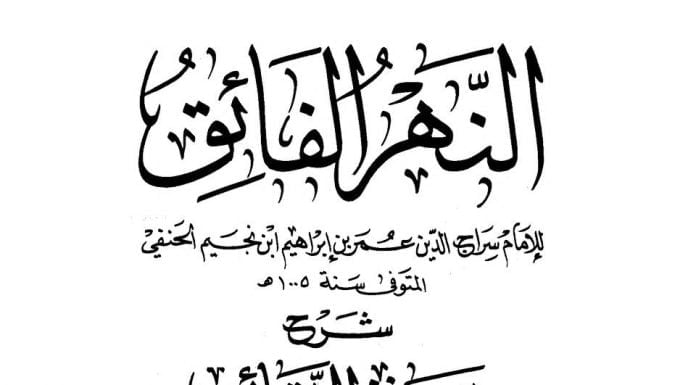 النَّهْرُ الفَائِقُ
للإمَام سِرَاج الدِّين عُمَر بن إبْراهِيم ابْن نجَيم الحَنَفي
المتَوفى سَنَة ١٠٠٥ هـ
شَرْح